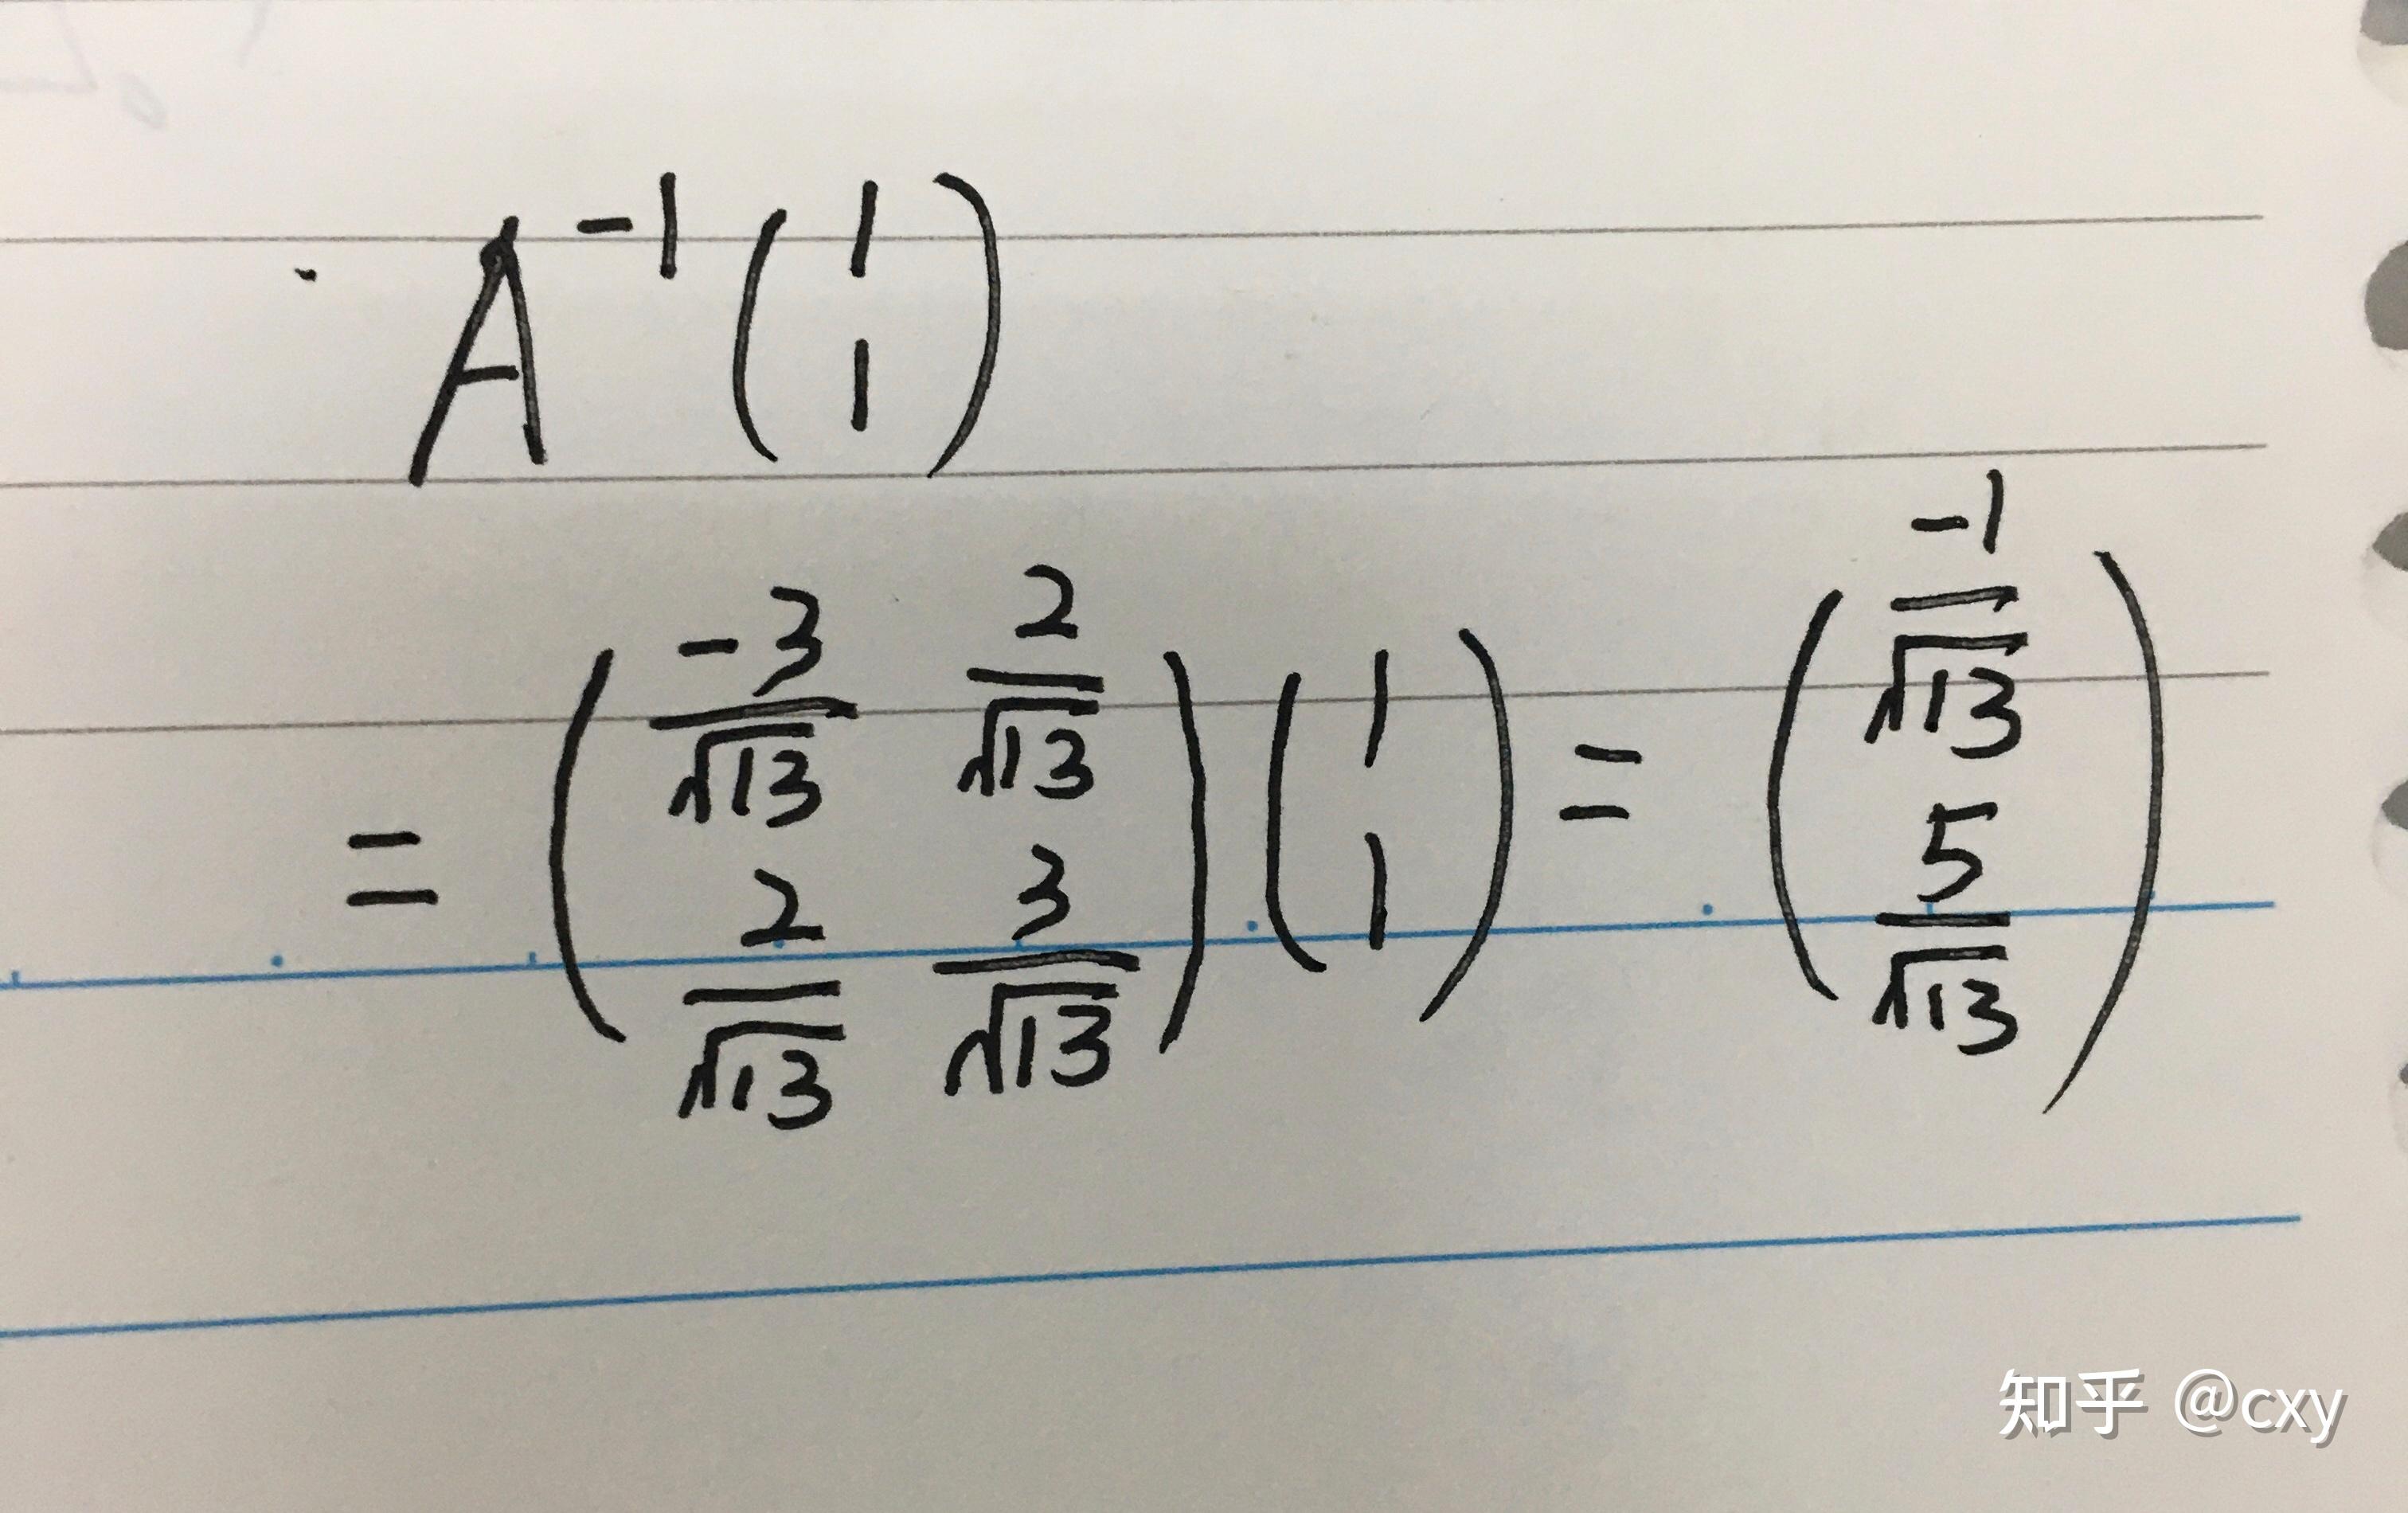 A⁻¹ (1 1)
= (-3/√13 2/√13 2/√13 3/√13) (1 1) = (-1/√13 5/√13)
知乎 @cxy